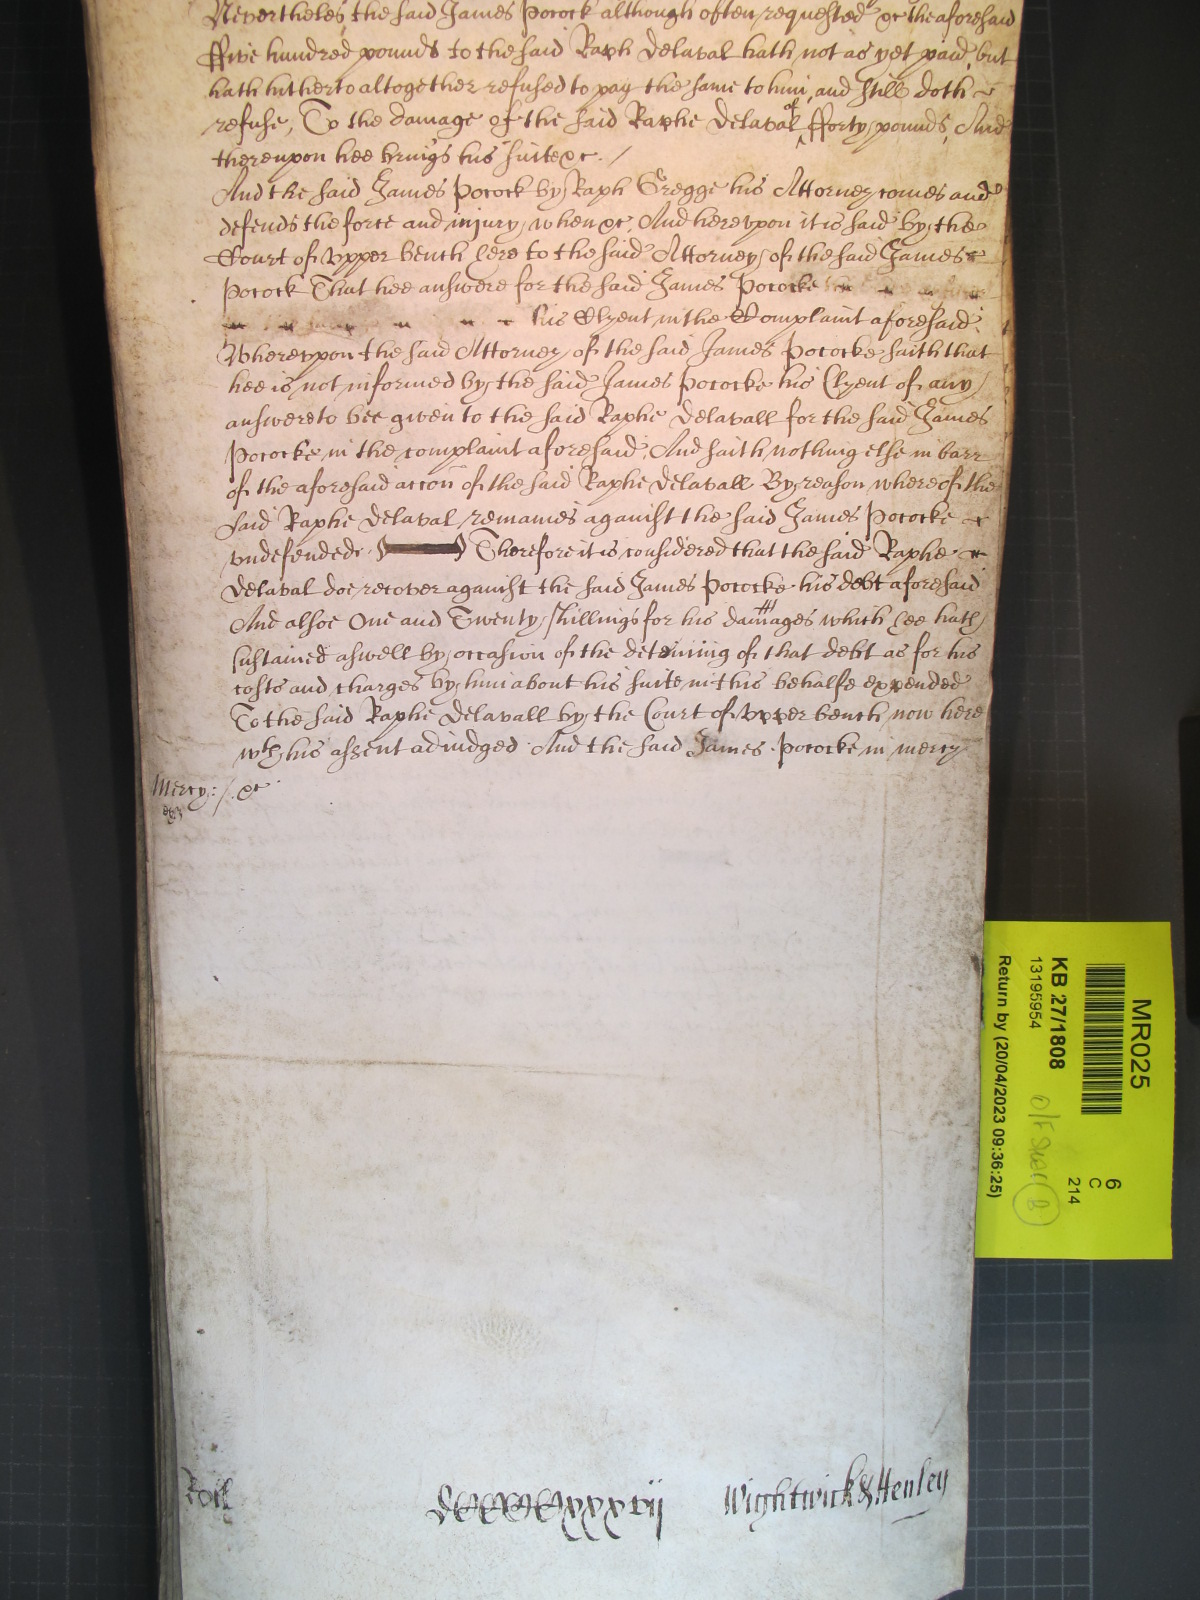 Nevertheles the said James Pocock although often requested &c the aforesaid
ffive hundred pounds to the said Raph Delaval hath not as yet paid, but
hath hitherto altogether refused to pay the same to him, and still doth
refuse, To the damage of the said Raphe Delaval of fforty pounds, And
thereupon hee brings his suite &c. /
And the said James Pocock by Raph Gregge his Attorney comes and
defends the force and injury when &c. And herevpon it is said by the
Court of vpper bench here to the said Attorney of the said James
Pocock That hee answere for the said James Pococke
his Clyent in the Complaint aforesaid.
Wherevpon the said Attorney of the said James Pococke saith that
hee is not informed by the said James Pococke his Clyent of any
answere to bee given to the said Raphe Delavall for the said James
Pococke in the complaint aforesaid. And saith nothing else in barr
of the aforesaid accon of the said Raphe Delavall By reason whereof the
said Raphe Delaval remaines against the said James Pococke
vndefended Therefore it is considered that the said Raphe
Delaval doe recover against the said James Pococke his debt aforesaid
And alsoe One and Twenty shillings for his damages which hee hath
sustained aswell by occasion of the deteining of that debt as for his
costs and charges by him about his suite in this behalfe expended
To the said Raphe Delavall by the Court of vpper bench now here
wth his assent adiudged And the said James Pococke in mercy
Mercy: /. &c
Roll
Wightwick & Henley
MR025
KB 27/1808
13195954
Return by (20/04/2023 09:36:25)
6
C
214